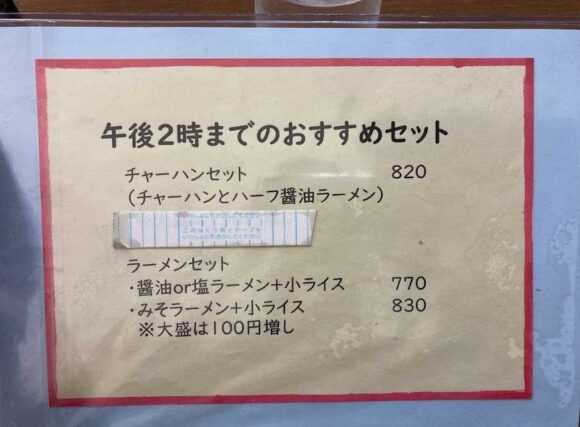 午後2時までのおすすめセット
チャーハンセット 820
(チャーハンとハーフ醤油ラーメン)
ラーメンセット
・醤油or塩ラーメン+小ライス 770
・みそラーメン+小ライス 830
※大盛は100円増し